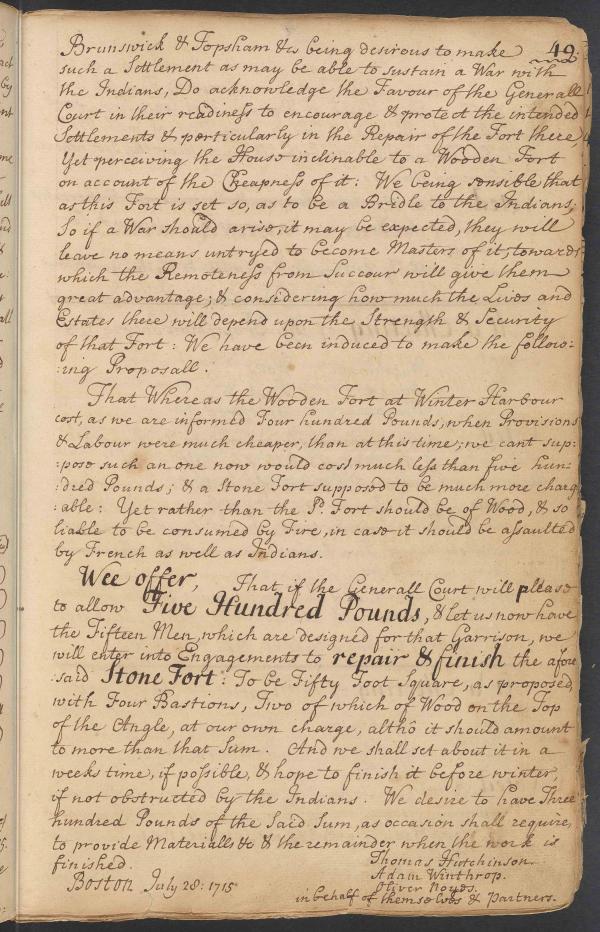 49.
Brunswick & Topsham &c being desirous to make
such a Settlement as may be able to sustain a War with
the Indians, Do acknowledge the Favour of the Generall
Court in their readiness to encourage & protect the intended
Settlements & particularly in the Repair of the Fort there
Yet perceiving the House inclinable to a Wooden Fort
on account of the Cheapness of it: We being sensible that
as this Fort is set so, as to be a Bridle to the Indians;
So if a War should arise, it may be expected, they will
leave no means untryed to become Masters of it, towards
which the Remoteness from Succour will give them
great advantage; & considering how much the Lives and
Estates there will depend upon the Strength & Security
of that Fort: We have been induced to make the follow:
:ing Proposall.
That Whereas the Wooden Fort at Winter Harbour
cost, as we are informed Four hundred Pounds, when Provisions
& Labour were much cheaper, than at this time; we cant sup:
:pose such an one now would cost much less than five hun:
:dred Pounds; & a Stone Fort supposed to be much more charg
:able: Yet rather than the Sd. Fort should be of Wood, & so
liable to be consumed by Fire, in case it should be assaulted
by French as well as Indians.
Wee offer, That if the Generall Court will please
to allow Five Hundred Pounds, & let us now have
the Fifteen Men, which are designed for that Garrison, we
will enter into Engagements to repair & finish the afore
:said Stone Fort: To be Fifty Foot Square, as proposed,
with Four Bastions, Two of which of Wood on the Top
of the Angle, at our own charge, altho it should amount
to more than that Sum. And we shall set about it in a
weeks time, if possible, & hope to finish it before winter,
if not obstructed by the Indians. We desire to have Three
hundred Pounds of the Said Sum, as occasion shall require,
to provide Materialls &c & the remainder when the work is
finished.
Thomas Hutchinson.
Adam Winthrop.
Oliver Noyes.
Boston July 28: 1715
in behalf of themselves & Partners.